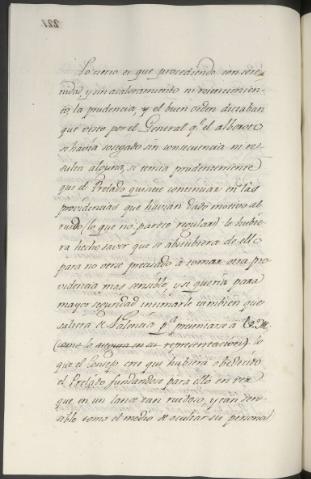 Lo cierto es que procediendo con sere-
nidad, y sin acaloramiento ni resentimien-
to, la prudencia, y el buen orden dictaban
que visto por el General q.e el alboroto
se havia sosegado sin consecuencia ni re-
sulta alguna, si temia prudentemente
que el Prelado quisiese continuar en las
providencias que havian dado motivo al
ruido (lo que no parece regular) le hubie-
ra hecho saver que se abstubiera de ello
para no verse precisado à tomar otra pro-
videncia mas sensible, y se queria para
mayor seguridad intimarle tambien que
saliera de Palencia p.a presentarse à
(como lo en su representacion) lo
que el Consejo cree que hubiera obedecido
el Prelado fundandose para ello en ver
que en un lance tan ruidoso, y tan sen-
sible tomo el medio de ocultar su persona